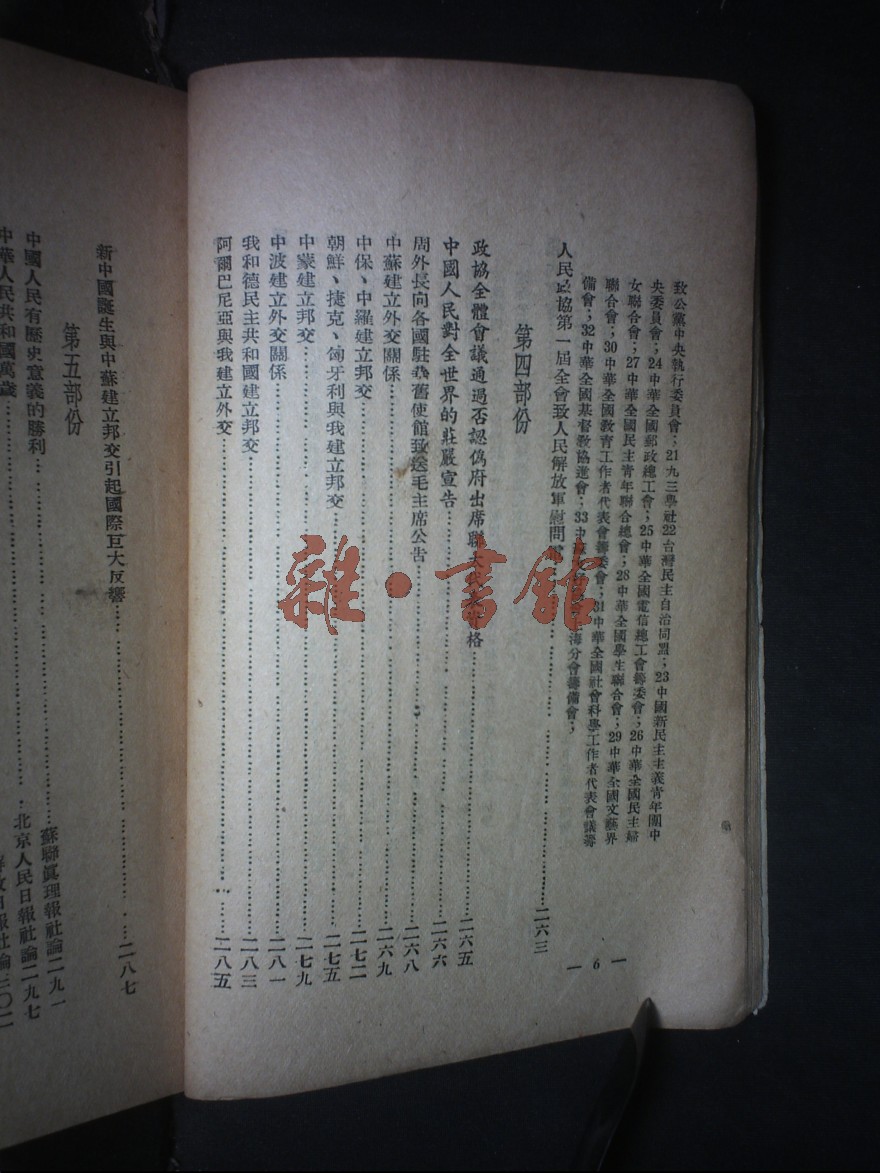 致公黨中央執行委員會；21九三學社22台灣民主自治同盟；23中國新民主主義青年團中
央委員會；24中華全國郵政總工會；25中華全國電信總工會籌委會；26中華全國民主婦
女聯合會；27中華全國民主青年聯合總會；28中華全國學生聯合會；29中華全國文藝界
聯合會；30中華全國教育工作者代表會籌委會；31中華全國社會科學工作者代表會議籌
備會；32中華全國基督教協進會；33中 海分會籌備會；
人民政協第一屆全會致人民解放軍慰問 二六三
— 6 —
第四部份
政協全體會議通過否認偽府出席聯大代表資格 二六五
中國人民對全世界的莊嚴宣告 二六六
周外長向各國駐華舊使館致送毛主席公告 二六八
中蘇建立外交關係 二六九
中保、中羅建立邦交 二七二
朝鮮、捷克、匈牙利與我建立邦交 二七五
中蒙建立邦交 二七九
中波建立外交關係 二八一
我和德民主共和國建立邦交 二八三
阿爾巴尼亞與我建立外交 二八五
新中國誕生與中蘇建立邦交引起國際巨大反響 二八七
第五部份
中國人民有歷史意義的勝利 蘇聯真理報社論 二九一
中華人民共和國萬歲 北京人民日報社論 二九七
報社論 三〇二
雜·書館